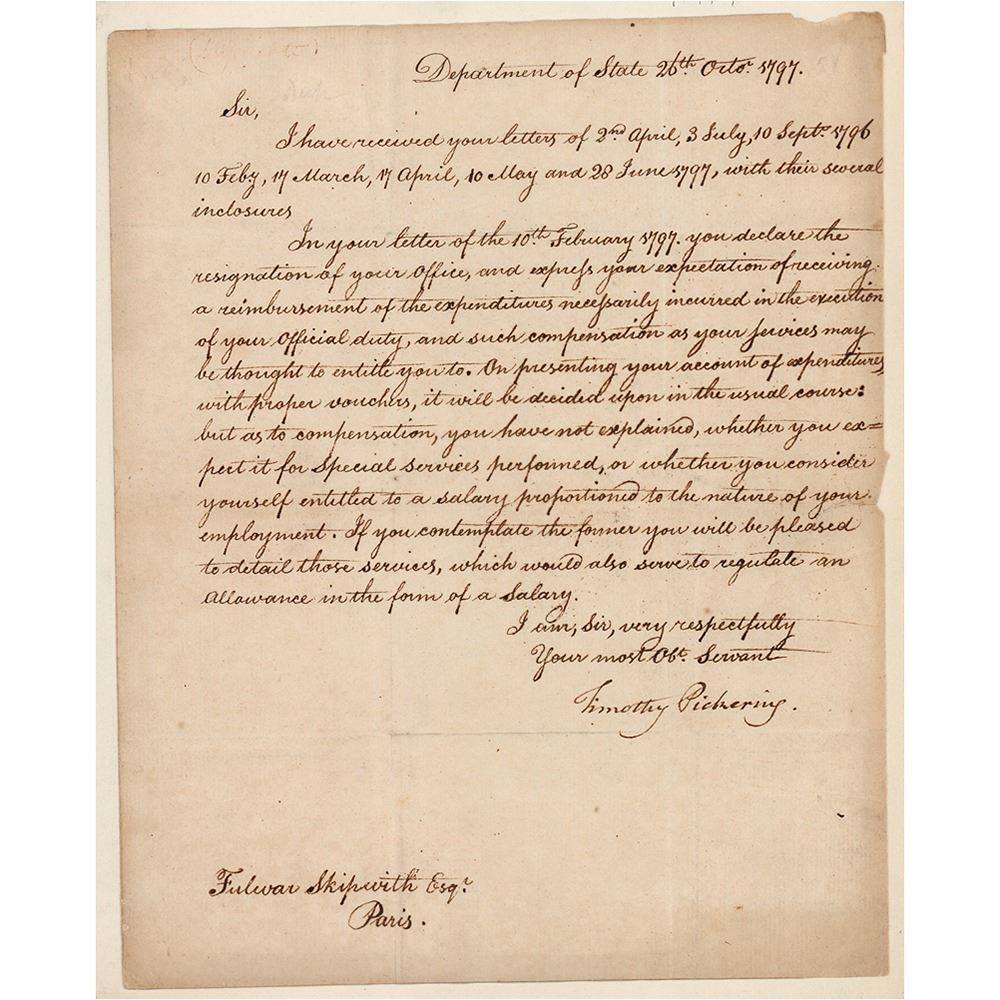 Department of State 26th Octor. 1797.
Sir,
I have received your letters of 2nd April, 3 July, 10 Septr. 1796
10 Feby, 17 March, 17 April, 10 May and 28 June 1797, with their several
inclosures
In your letter of the 10th February 1797. you declare the
resignation of your Office, and express your expectation of receiving
a reimbursement of the expenditures necessarily incurred in the execution
of your Official duty, and such compensation as your services may
be thought to entitle you to. On presenting your account of expenditures,
with proper vouchers, it will be decided upon in the usual course:
but as to compensation, you have not explained, whether you ex=
pect it for Special services performed, or whether you consider
yourself entitled to a salary proportioned to the nature of your
employment. If you contemplate the former you will be pleased
to detail those services, which would also serve to regulate an
Allowance in the form of a Salary.
I am, Sir, very respectfully
Your most Obt. Servant
Timothy Pickering.
Fulwar Skipwith Esqr.
Paris.